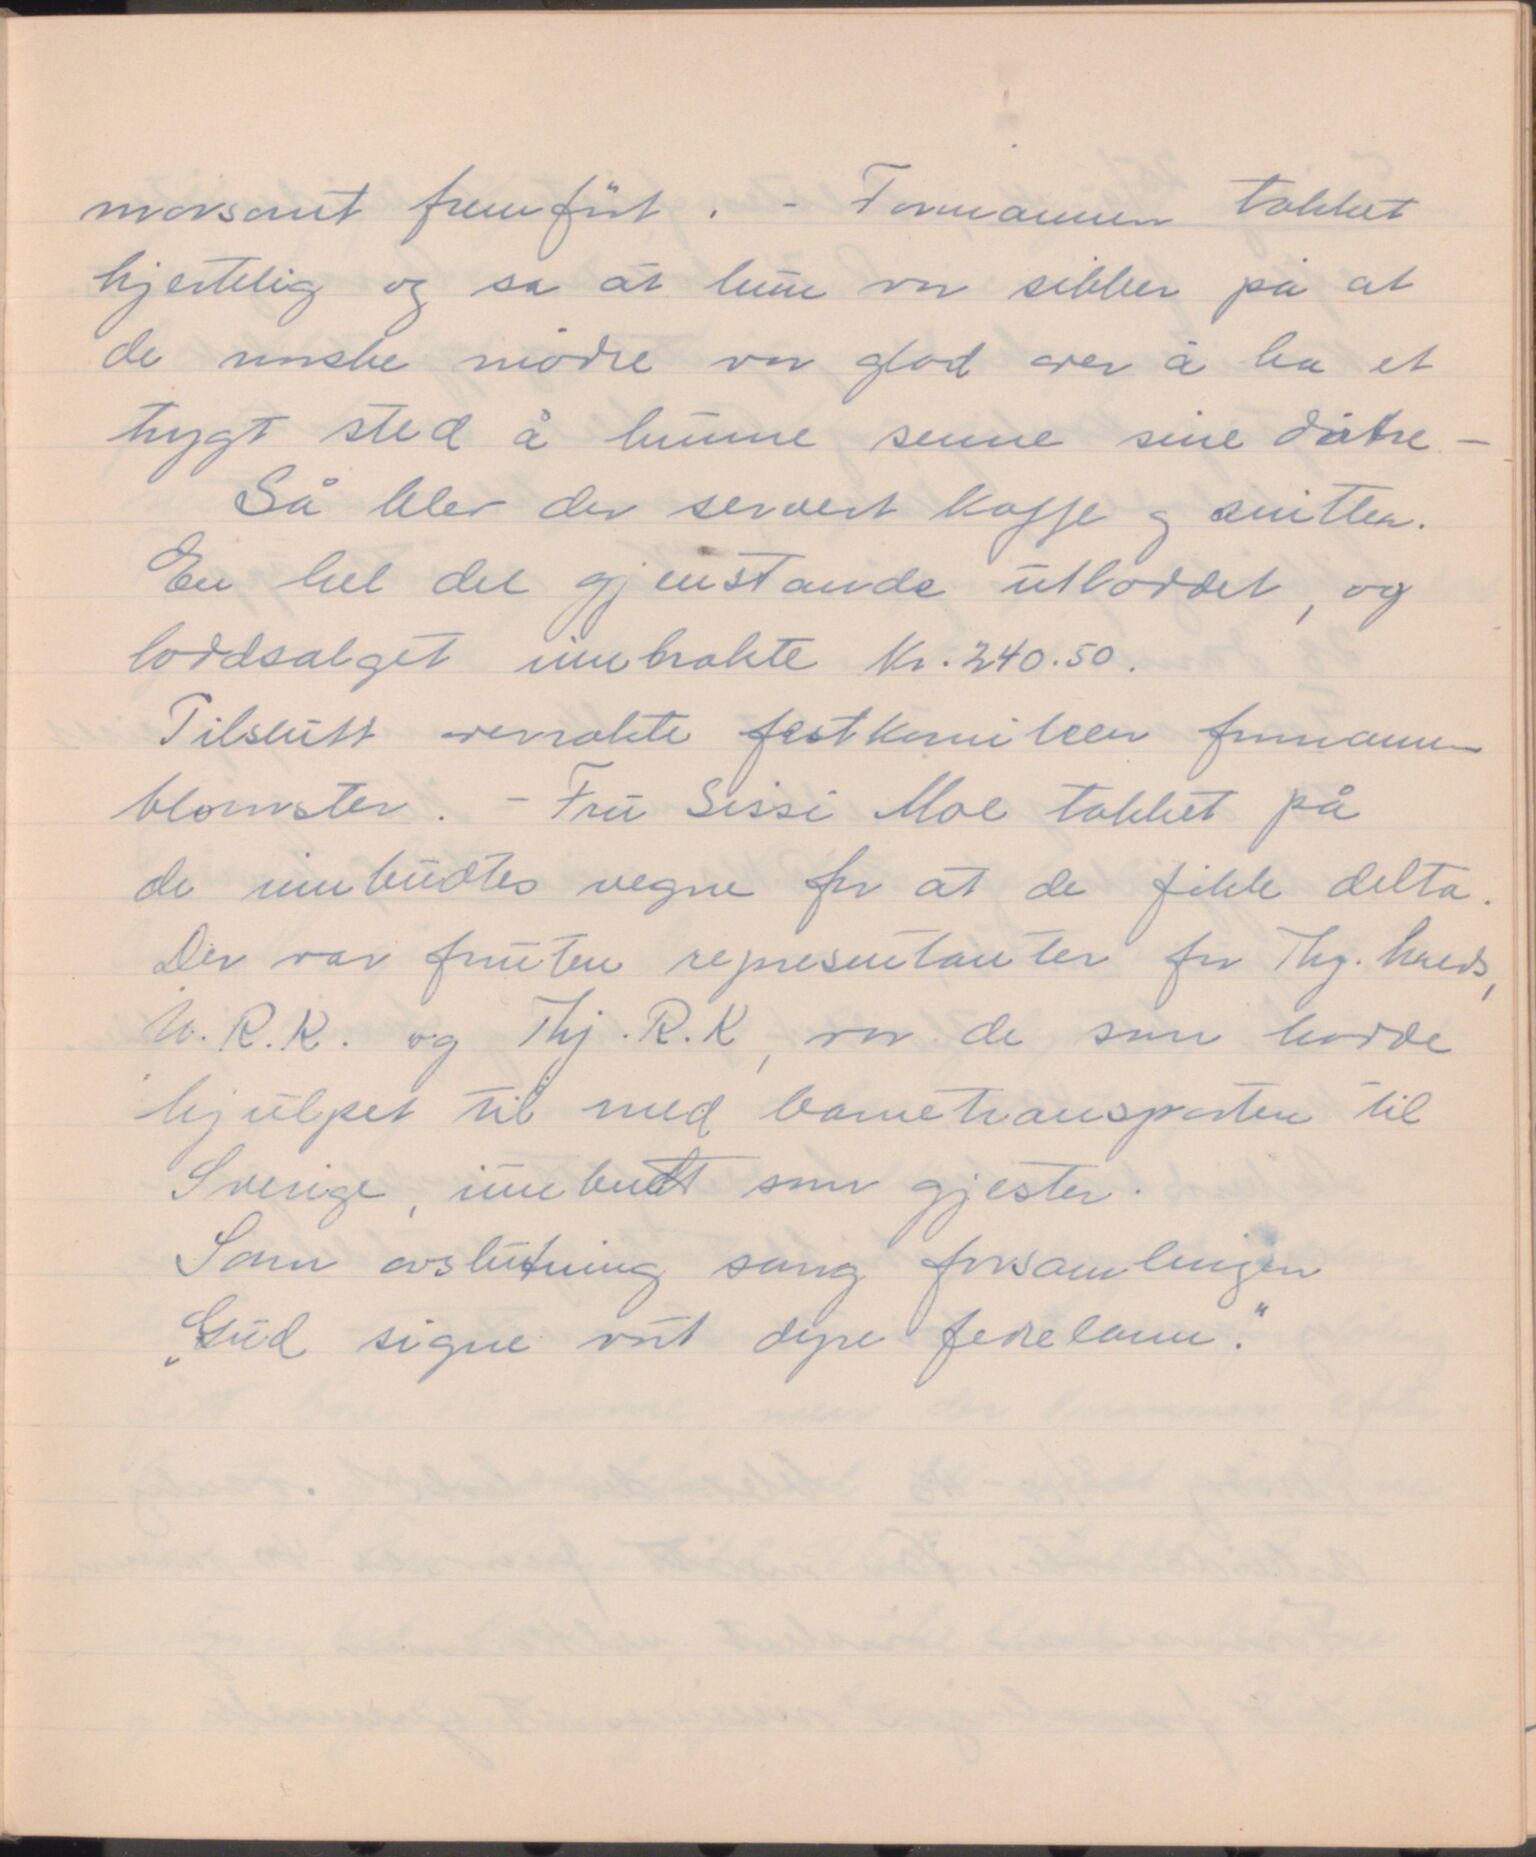 morsomt fremført. - Formannen takket
hjertelig og sa at hun var sikker på at
de norske mødre var glad over å ha et
trygt sted å kunne senne sine døtre -
Så blev der servert kaffe og snitter.
En hel del gjenstande utloddet, og
loddsalget innbrakte Kr. 240.50.
Tilslutt overrakte festkomiteen formannen
blomster. - Fru Sissi Moe takket på
de innbudtes vegne for at de fikk delta.
Der var foruten representanter for Thj. kreds,
N.R.K. og Thj. R.K, var de som hadde
hjulpet til med barnetransporten til
Sverige, innbudt som gjester.
Som avslutning sang forsamlingen
„Gud signe vårt dyre fedreland."